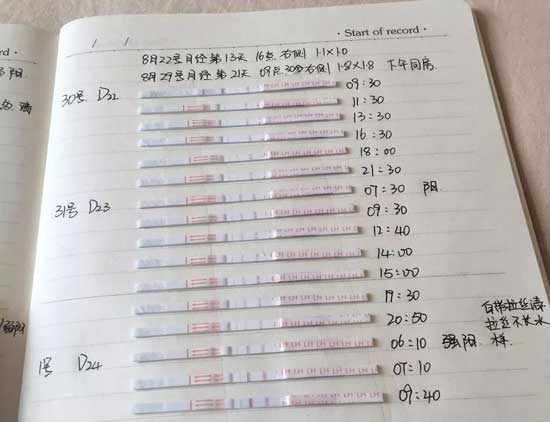 · Start of record ·
8月22号月经第13天 16点右侧 1.1×1.0
8月29号月经第21天 09点30分右侧 1.8×1.8 下午同房
30号 D22 09:30
11:30
13:30
16:30
18:00
21:30
31号 D23 07:30 阳
09:30
12:40
14:00
15:00
19:30
20:50 白带拉丝清
拉丝不长水
1号 D24 06:10 强阳 样.
07:10
09:40